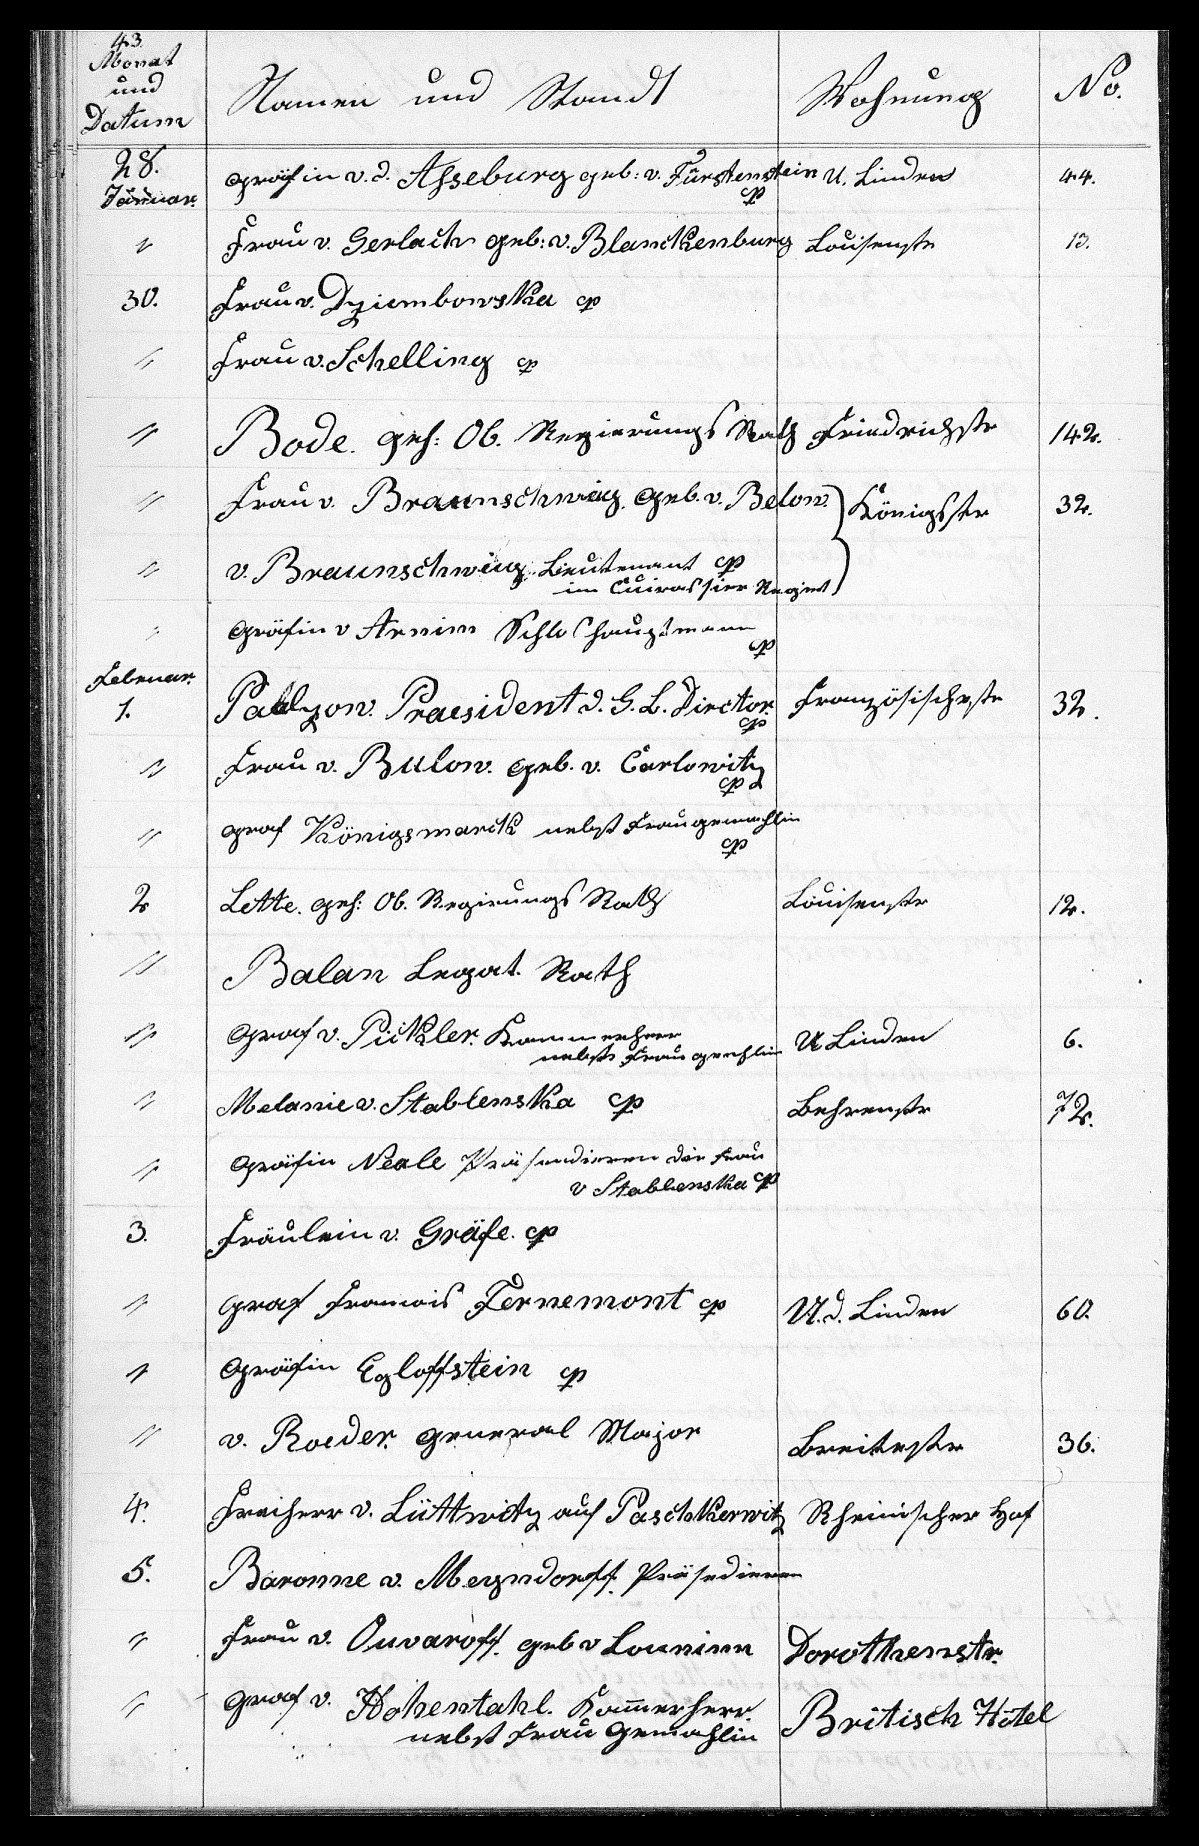 43.
Monat
und
Datum
Namen und Standt
Wohnung
No.
28.
Januar.
Gräfin v. d. Asseburg geb: v. Fürstenstein cp U. Linden 44.
" Frau v. Gerlach geb: v. Blanckenburg Louisenstr 13.
30. Frau v. Dziembowska cp
" Frau v. Schelling cp
" Bode. geh: Ob. Regierungs Rath Friedrichstr 142.
" Frau v. Braunschweig. geb. v. Below. Königsstr 32.
" v. Braunschweig. Lieutenant cp
im Cuirassier Regimt
" Gräfin v Arnim Schloshauptmann cp
Februar.
1. Praesident d. G. L. Director. cp Französischestr 32.
" Frau v. Bulow. geb. v. Carlowitz cp
" Graf Königsmarck nebst Frau gemahlin cp
2 Lette. geh: Ob. Regierungs Rath Louisenstr 12.
" Balan Legat. Rath
" Graf v. Pückler. Kammerherr
nebst Frau gemhlin U Linden 6.
" Melanie v. Stablenska cp Behrenstr 72.
" Gräfin Neale Präsendieren die Frau
v Stablenska cp
3. Fräulein v. Gräfe. cp
" Graf Francois Fernemont cp U. d. Linden 60.
" Gräfin Egloffstein cp
" v. Roeder. General Major Breitestr 36.
4. Freiherr v. Lüttwitz auf Paschkerwitz Rheinischer Hof
5. Baronne v. Meyndorff. Präsedieren
" Frau v. Ouvaroff. geb v Louninn Dorothenstr.
" Graf v. Hohentahl. Kam̄erherr.
nebst Frau Gemahlin Britisch Hôtel